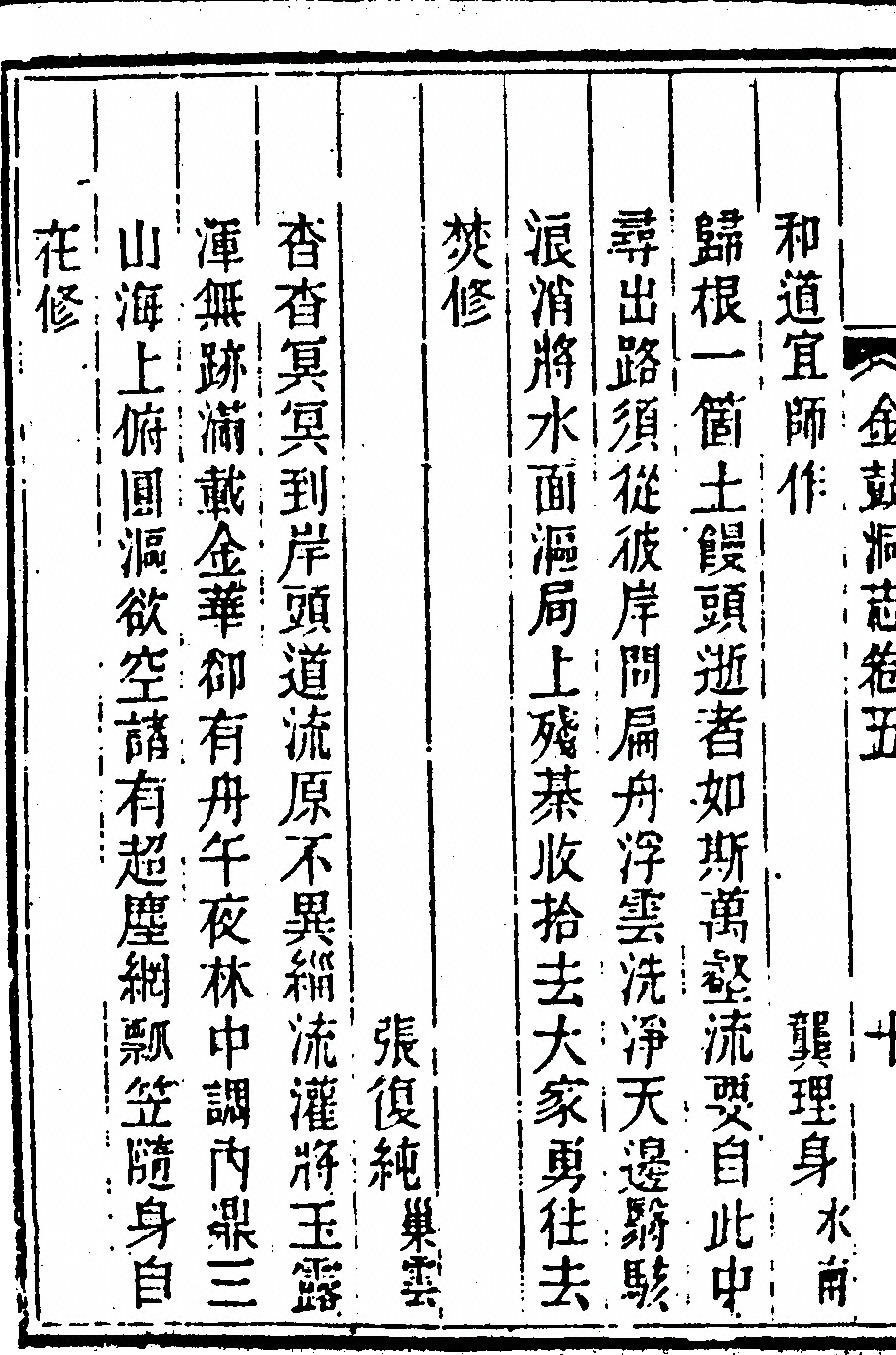 金鼓洞志卷五 十
和道宜師作 龔理身 水南
歸根一箇土饅頭逝者如斯萬壑流要自此中
尋出路須從彼岸問扁舟浮雲洗淨天邊翳駭
浪消將水面漚局上殘棊收拾去大家勇往去
焚修
張復純 巢雲
杳杳冥冥到岸頭道流原不異緇流灌將玉露
渾無跡滿載金華卻有舟午夜林中調內鼎三
山海上俯圓漚欲空諸有超塵網瓢笠隨身自
在修